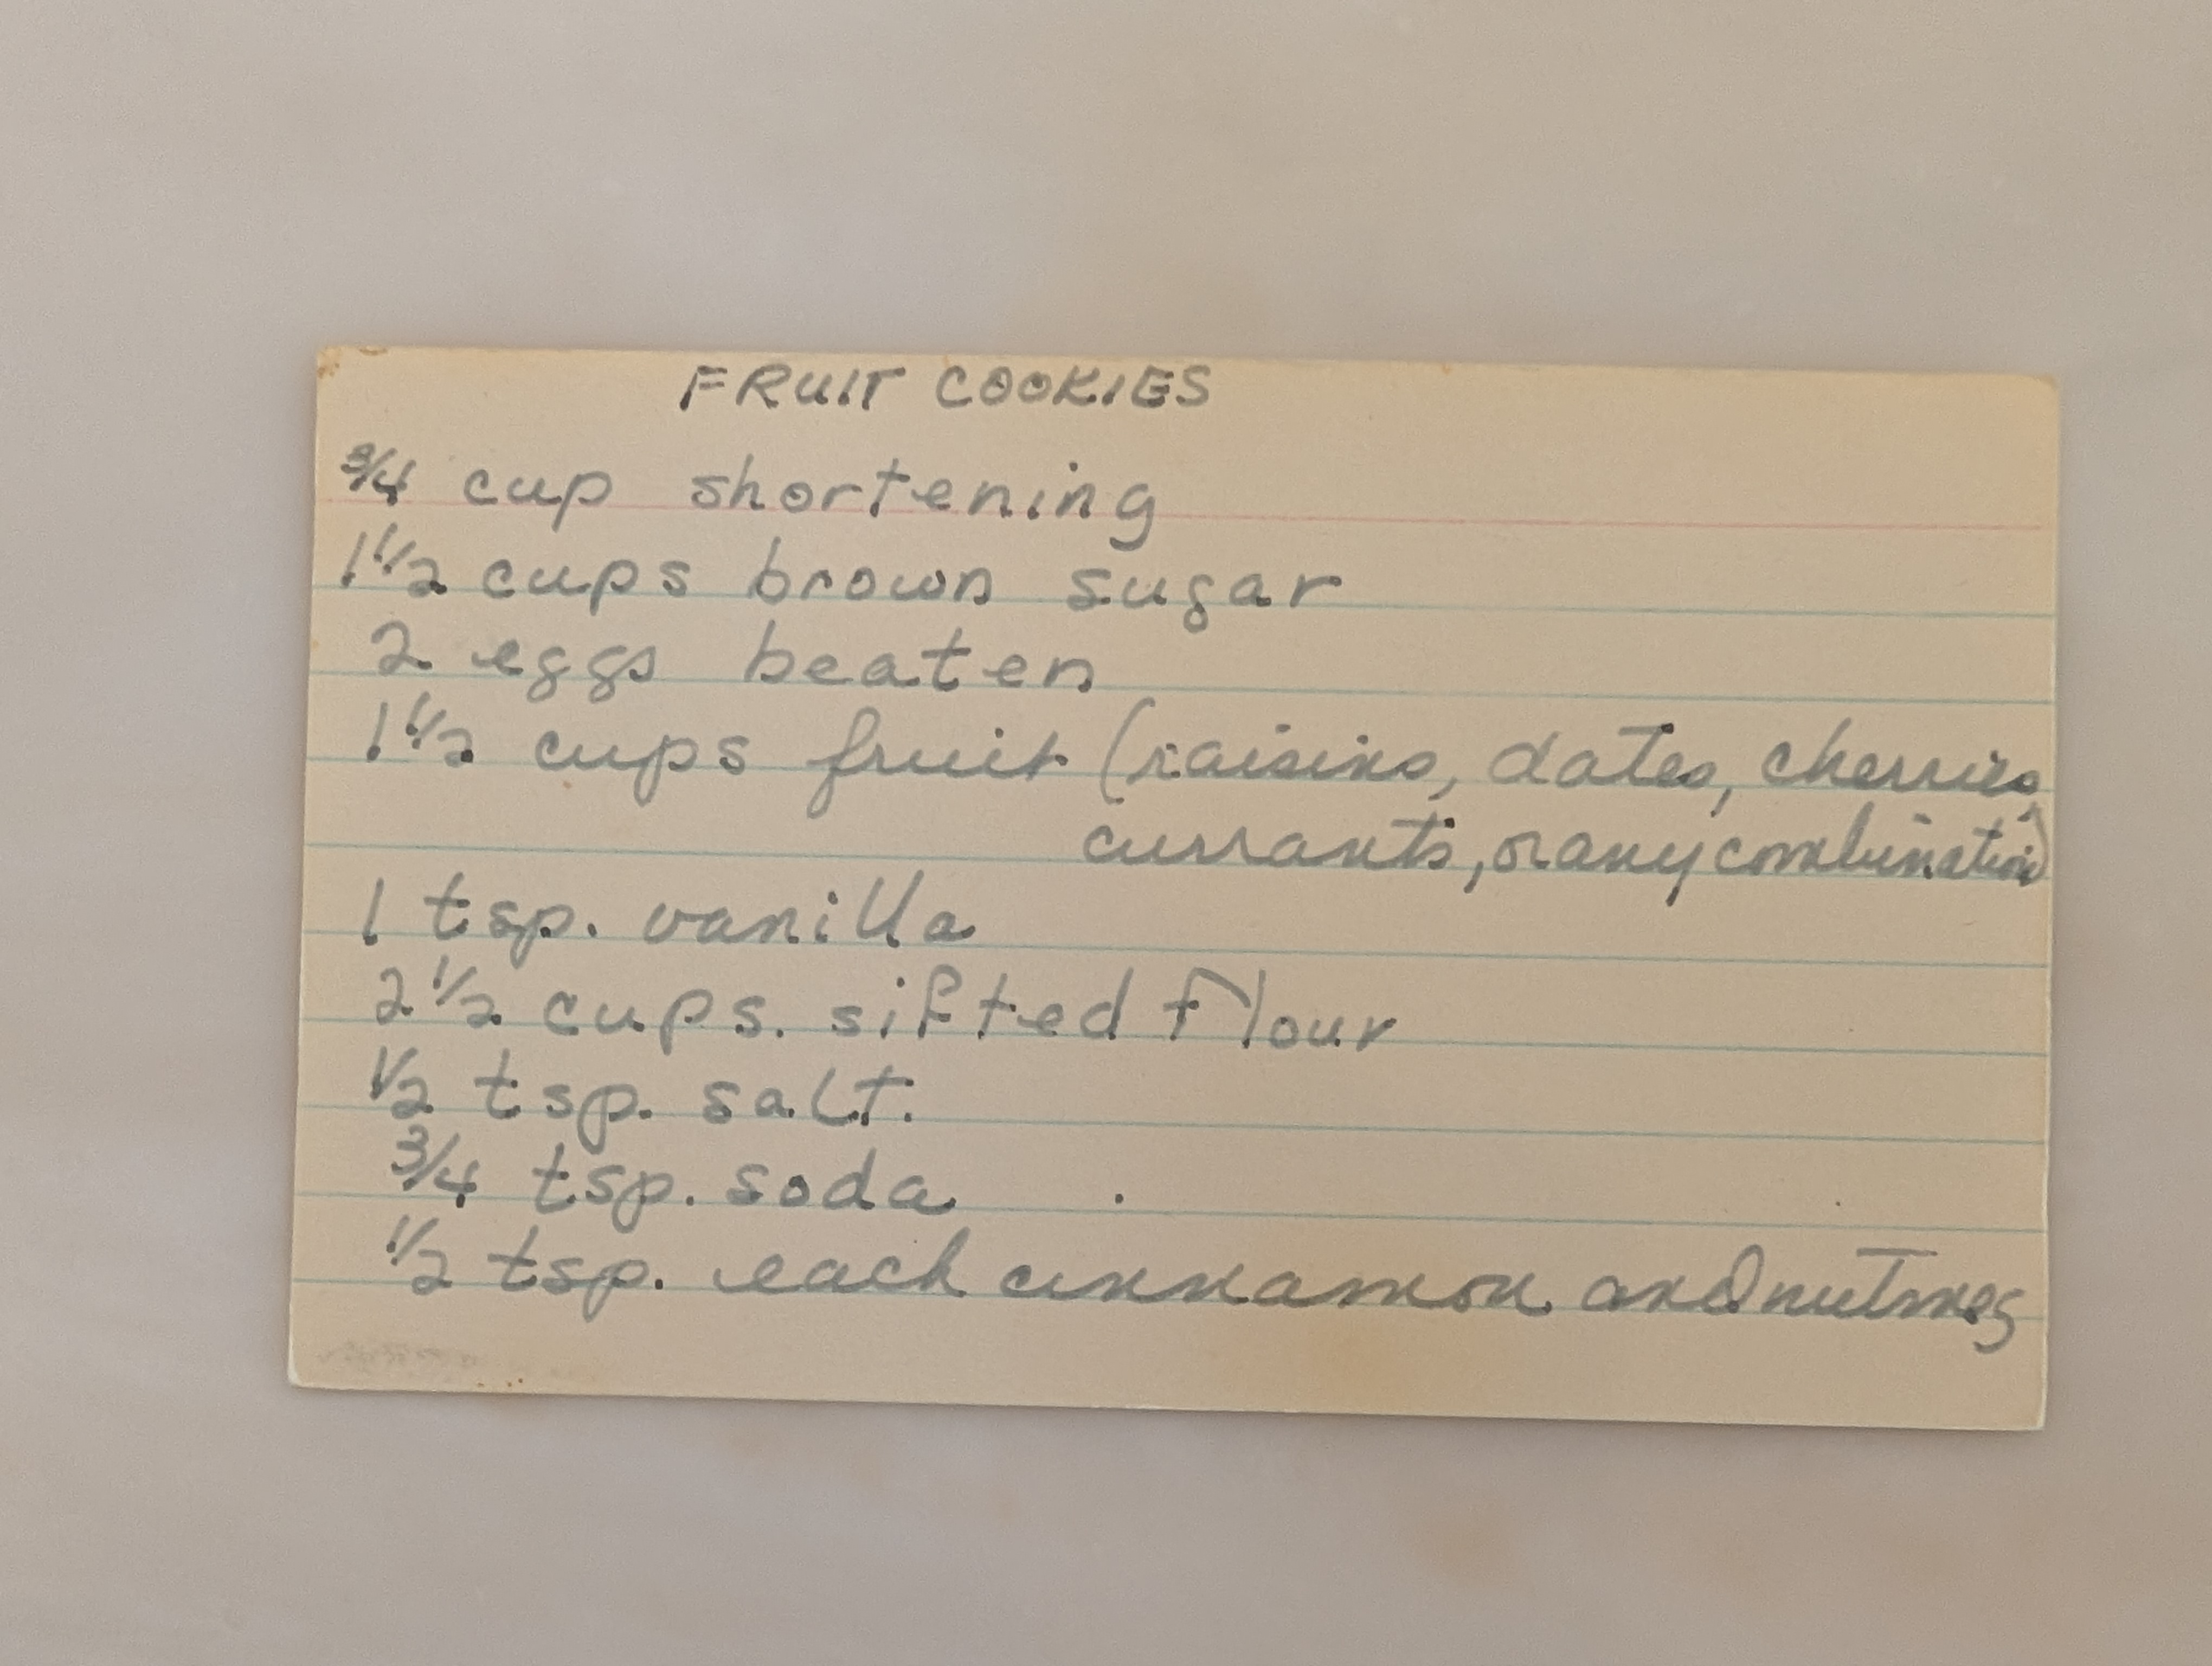 FRUIT COOKIES
3/4 cup shortening
1 1/2 cups brown sugar
2 eggs beaten
1 1/2 cups fruit (raisins, dates, cherries,
currants, or any combination)
1 tsp. vanilla
2 1/2 cups. sifted flour
1/2 tsp. salt.
3/4 tsp. soda
1/2 tsp. each cinnamon and nutmeg